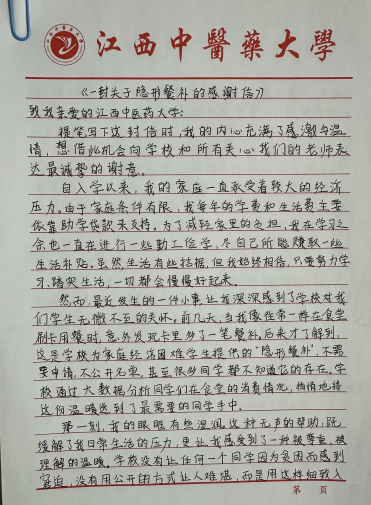 江西中醫藥大學
《一封关于隐形餐补的感谢信》
致我亲爱的江西中医药大学:
提笔写下这封信时,我的内心充满了感激与温
情,想借此机会向学校和所有关心我们的老师表
达最诚挚的谢意。
自入学以来,我的家庭一直承受着较大的经济
压力。由于家庭条件有限,我每年的学费和生活费主要
依靠助学贷款来支持,为了减轻家里的负担,我在学习之
余也一直在进行一些勤工俭学,尽自己所能赚取一些
生活补贴。虽然生活有些拮据,但我始终相信,只要努力学
习、踏实生活,一切都会慢慢好起来。
然而,最近发生的一件小事让我深深感到了学校对我
们学生无微不至的关怀。前几天,当我像往常一样在食堂
刷卡用餐时,意外发现卡里多了一笔餐补。后来才了解到,
这是学校为家庭经济困难学生提供的"隐形餐补",不需
要申请,不公开名单,甚至很多同学都不知道它的存在。学
校通过大数据分析同学们在食堂的消费情况,悄悄地将
这份温暖送到了最需要的同学手中。
那一刻,我的眼眶有些湿润。这种无声的帮助,既
缓解了我日常生活的压力,更让我感受到了一种被尊重、被
理解的温暖。学校没有让任何一个同学因为贫困而感到
窘迫,没有用公开的方式让人难堪,而是用这样细致入
第 页